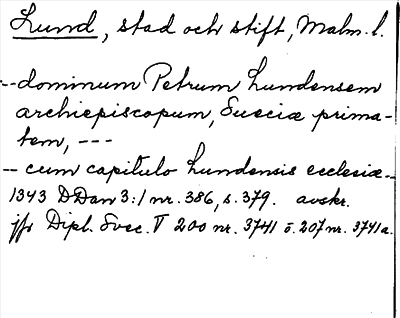 Lund, stad och stift, Malm. l.
-- dominum Petrum Lundensem
archiepiscopum, Sueciæ prima-
tem, ---
-- cum capitulo Lundensis ecclesiæ --
1343 DDan 3:1 nr. 386, s. 379. avskr.
jfr Dipl. Svec. V 200 nr. 3741 o. 207 nr. 3741a.